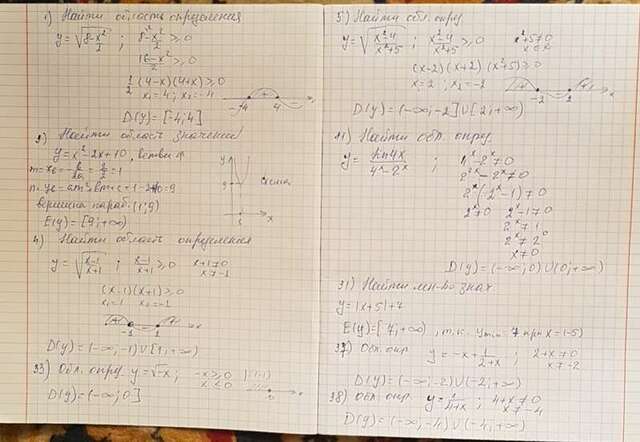 1) Найти область определения
y = √(8 - x²/2) ; 8 - x²/2 ≥ 0
(16 - x²)/2 ≥ 0
1/2 (4-x)(4+x) ≥ 0
x₁ = 4; x₂ = -4
-4 + 4 x
D(y) = [-4; 4]
2) Найти область значений
y = x² - 2x + 10, ветви ↑
m = x₀ = -b/2a = 2/2 = 1
n = y₀ = 1 - 2 + 10 = 9
вершина параб. (1; 9)
E(y) = [9; +∞)
y 9 1 x
4) Найти область определения
y = √((x-1)/(x+1)) ; (x-1)/(x+1) ≥ 0 x+1 ≠ 0
x ≠ -1
(x-1)(x+1) ≥ 0
x₁ = 1 x₂ = -1
+ -1 - 1 + x
D(y) = (-∞; -1) ∪ [1; +∞)
33) Обл. опред. y = √-x ; -x ≥ 0 |·(-1)
x ≤ 0
0 x
D(y) = (-∞; 0]
5) Найти обл. опред
y = √((x²-4)/(x²+5)) ; (x²-4)/(x²+5) ≥ 0 x²+5 ≠ 0
(x-2)(x+2)(x²+5) ≥ 0
x = 2 ; x₂ = -2
+ -2 - 2 + x
D(y) = (-∞; -2] ∪ [2; +∞)
Найти обл. опред
y = ln4x/(4ˣ-2ˣ) ; 4ˣ-2ˣ ≠ 0
2²ˣ - 2ˣ ≠ 0
2ˣ(2ˣ - 1) ≠ 0
2ˣ ≠ 0 2ˣ - 1 ≠ 0
2ˣ ≠ 1
2ˣ ≠ 2⁰
x ≠ 0
D(y) = (-∞; 0) ∪ (0; +∞)
31) Найти мн-во знач
y = |x+5| + 7
E(y) = [7; +∞), т.к. y min = 7 при x = (-5)
37) Обл. опр y = -x + 1/(2+x) ; 2+x ≠ 0
x ≠ -2
D(y) = (-∞; -2) ∪ (-2; +∞)
38) обл. опр y = 1/(4+x) ; 4+x ≠ 0
x ≠ -4
D(y) = (-∞; -4) ∪ (-4; +∞)